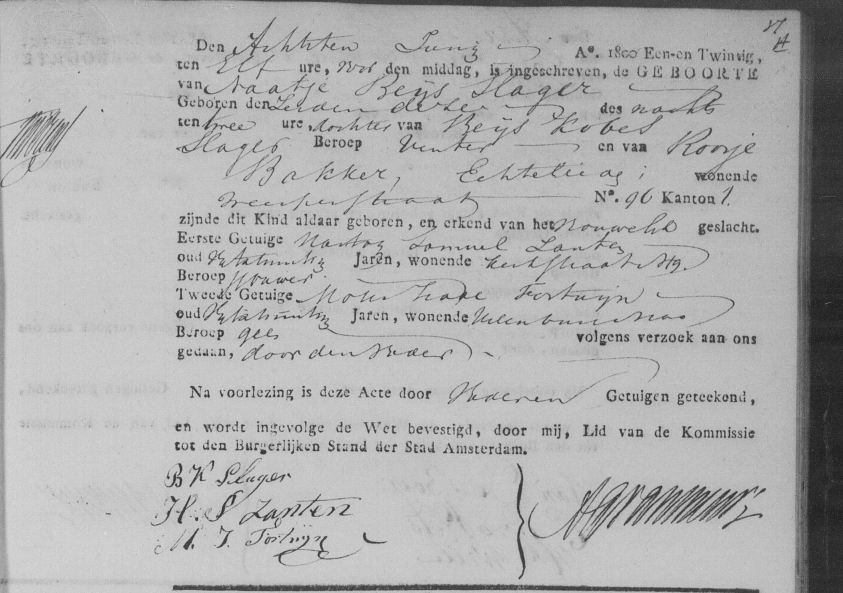 Den Achtsten Juny A°. 1800 Een-en Twintig,
ten Elf ure, voor den middag, is ingeschreven, de GEBOORTE
van Naatje Beijs Slager
Geboren den dezer des nachts
ten twee ure, dochter van Beijs Kobes
Slager Beroep Venter en van Roosje
Bakker, Echtelieden wonende
Weesperstraat N°. 96 Kanton 1.
zijnde dit Kind aldaar geboren, en erkend van het Vrouwelijk geslacht.
Eerste Getuige Hartog Samuel Zanten
oud Jaren, wonende Kerkstraat
Beroep
Tweede Getuige Mozes Fortuyn
oud Jaren, wonende
Beroep geen volgens verzoek aan ons
gedaan, door den Vader
Na voorlezing is deze Acte door Getuigen geteekend,
en wordt ingevolge de Wet bevestigd, door mij, Lid van de Kommissie
tot den Burgerlijken Stand der Stad Amsterdam.
B K Slager
H. S Zanten
M. I. Fortuyn